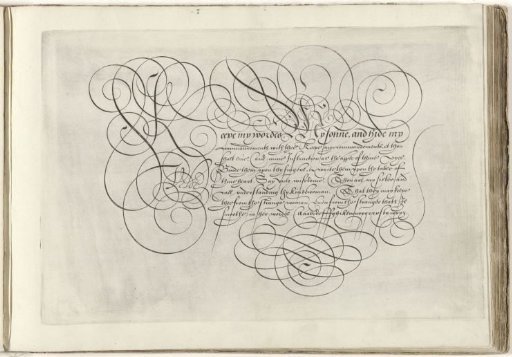 Keepe my wordes, My sonne, and hide my
commandements with thee. Keepe my commandements, & thou
shalt live, and mine instruction as the apple of thine eyes.
Binde them upon thy fingers, write them upon the table of
thine heart. Say unto wisdome, Thou art my sister, and
call understanding thy kinswoman. That they may keepe
thee from the strange woman, even from the stranger that is
smooth in her wordes